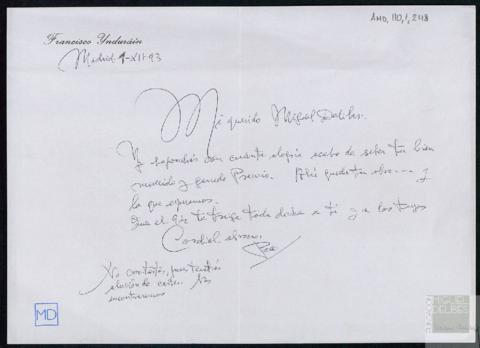 AMD, 110, 1, 248
Francisco Ynduráin
Madrid 1-XII-93
Mi querido Miguel Delibes.
Ya supondrás con cuánta alegría acabo de saber tu bien
merecido y ganado Premio. Ahí queda tu obra.... y
la que esperamos.
Que el 94 te traiga toda dicha a ti y a los tuyos
Cordial abrazo,
Paco
No contestes, pues tendrás
de cartas. Nos
encontraremos
MD
FUNDACIÓN
MIGUEL
DELIBES